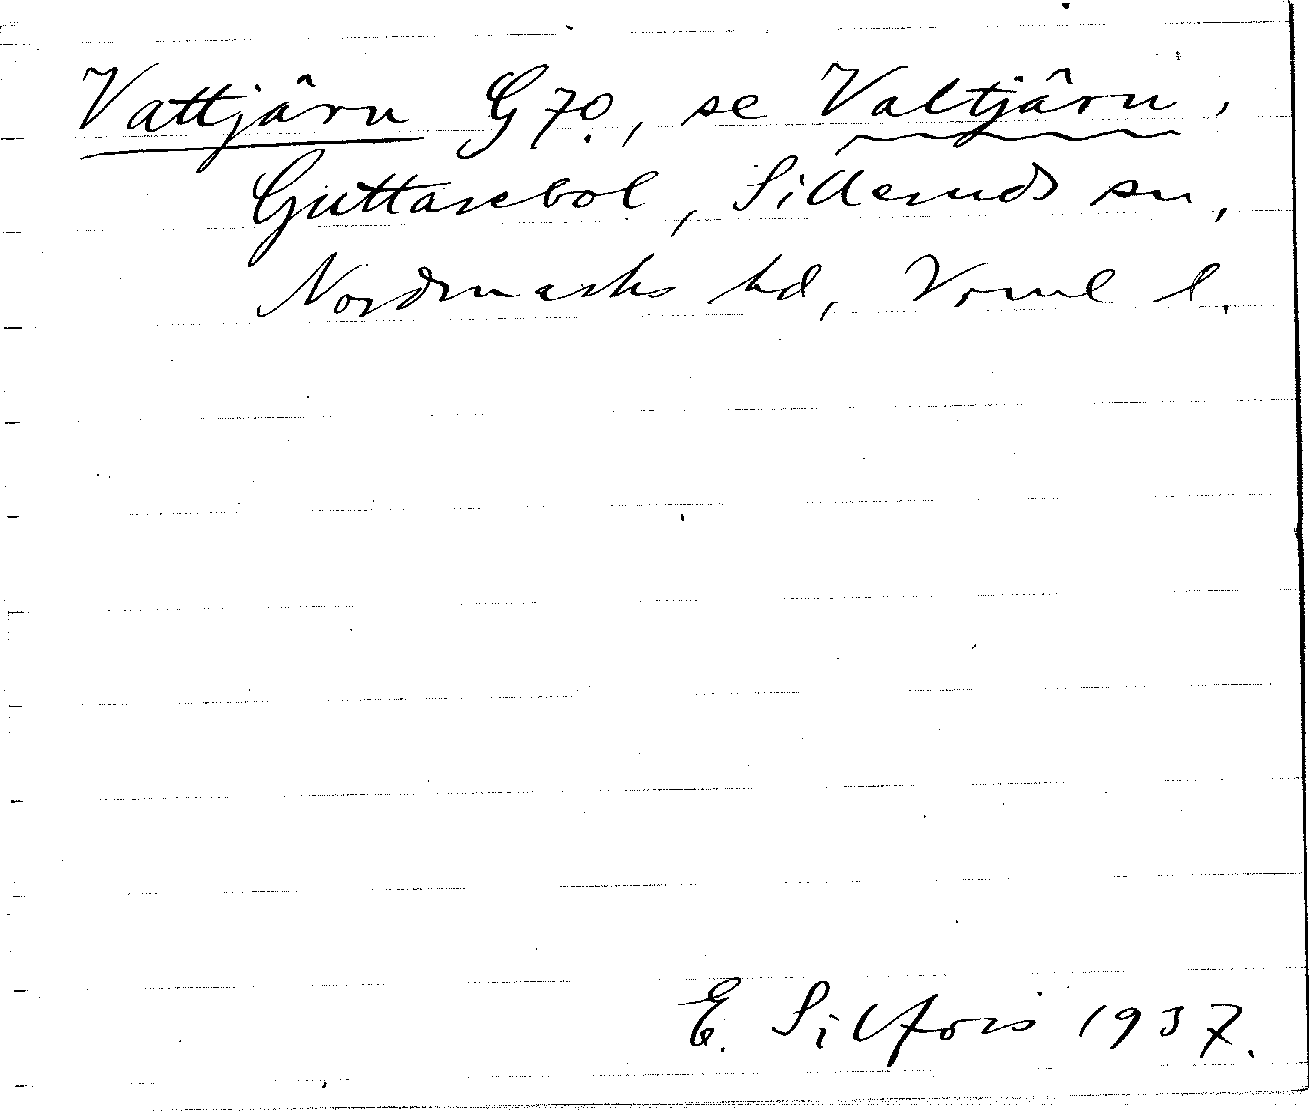 Vattjärn G70, se Valtjärn,
Guttarebol, Silleruds sn,
Nordmarks hd, Vrml l.
E. Silfors 1937.